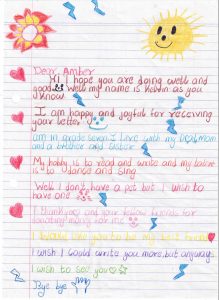 Dear Amber
Hi I hope you are doing well and
good. Well my name is Kelvin as you
know
I am happy and joyful for receiving
your letter
am in grade seven I live with my
and a brother and sister
My hobby is to read and write and my talent
is to dance and sing
Well I don't have a pet but I wish to
have one
I thank you and your fellow friends for
me
I would like you to be my best friend
I wish I could write you more but anyways
I wish to see you
Bye bye